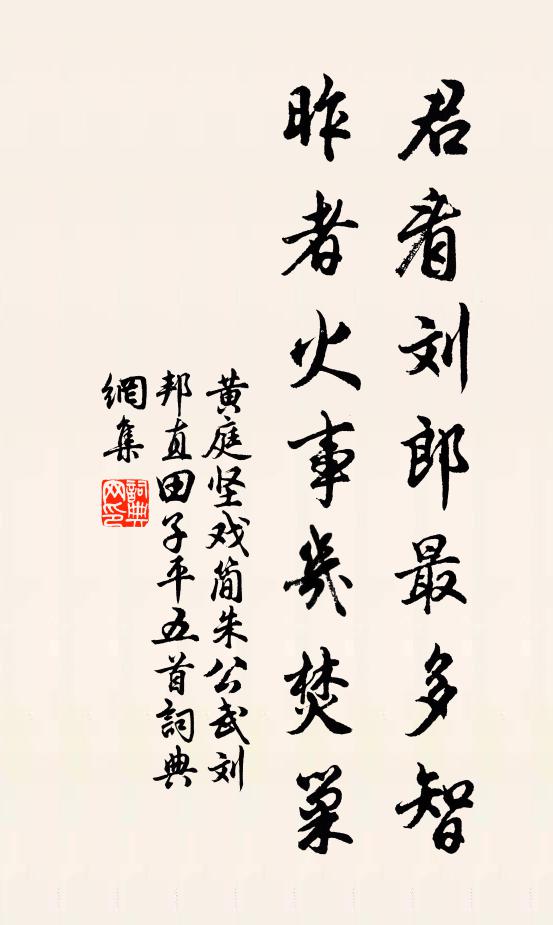 君看刘郎最多智
昨者火事几焚巢
黄庭坚戏简朱公武刘
邦直田子平五首詞典
網集
詞典
网印